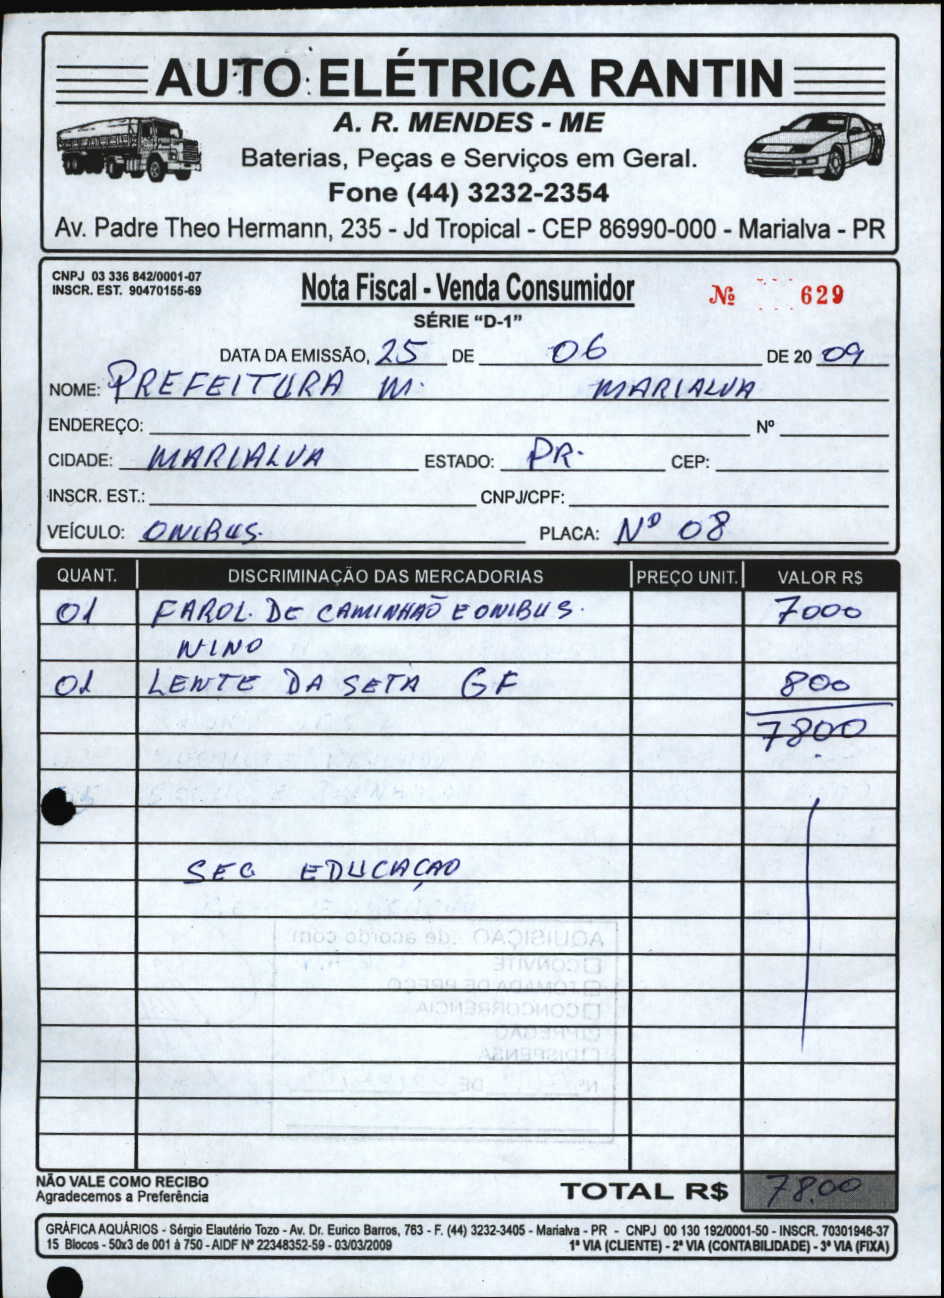 AUTO ELÉTRICA RANTIN
A. R. MENDES - ME
Baterias, Peças e Serviços em Geral.
Fone (44) 3232-2354
Av. Padre Theo Hermann, 235 - Jd Tropical - CEP 86990-000 - Marialva - PR
CNPJ 03 336 842/0001-07
INSCR. EST. 90470155-69
Nota Fiscal - Venda Consumidor
Nº 629
SÉRIE "D-1"
DATA DA EMISSÃO, 25 DE 06 DE 20 09
NOME: PREFEITURA M. MARIALVA
ENDEREÇO: Nº
CIDADE: MARIALVA ESTADO: PR. CEP:
INSCR. EST.: CNPJ/CPF:
VEÍCULO: ONIBUS. PLACA: Nº 08
QUANT. DISCRIMINAÇÃO DAS MERCADORIAS PREÇO UNIT. VALOR R$
01 FAROL. DE CAMINHAÕ E ONIBUS. 7000
NINO
01 LENTE DA SETA GF 800
7800
SEC EDUCAÇAO
AQUISIÇÃO de acordo com:
CONVITE
TOMADA DE PREÇO
CONCORRÊNCIA
PREGÃO
DISPENSA
Nº DE
NÃO VALE COMO RECIBO
Agradecemos a Preferência
TOTAL R$ 78.00
GRÁFICA AQUÁRIOS - Sérgio Elautério Tozo - Av. Dr. Eurico Barros, 763 - F. (44) 3232-3405 - Marialva - PR - CNPJ 00 130 192/0001-50 - INSCR. 70301946-37
15 Blocos - 50x3 de 001 à 750 - AIDF Nº 22348352-59 - 03/03/2009 1ª VIA (CLIENTE) - 2ª VIA (CONTABILIDADE) - 3ª VIA (FIXA)